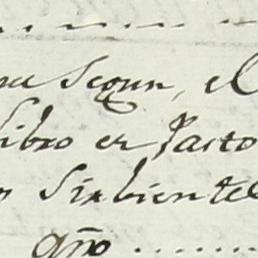 Segun, el
libro er Parto
Sirbiente
año